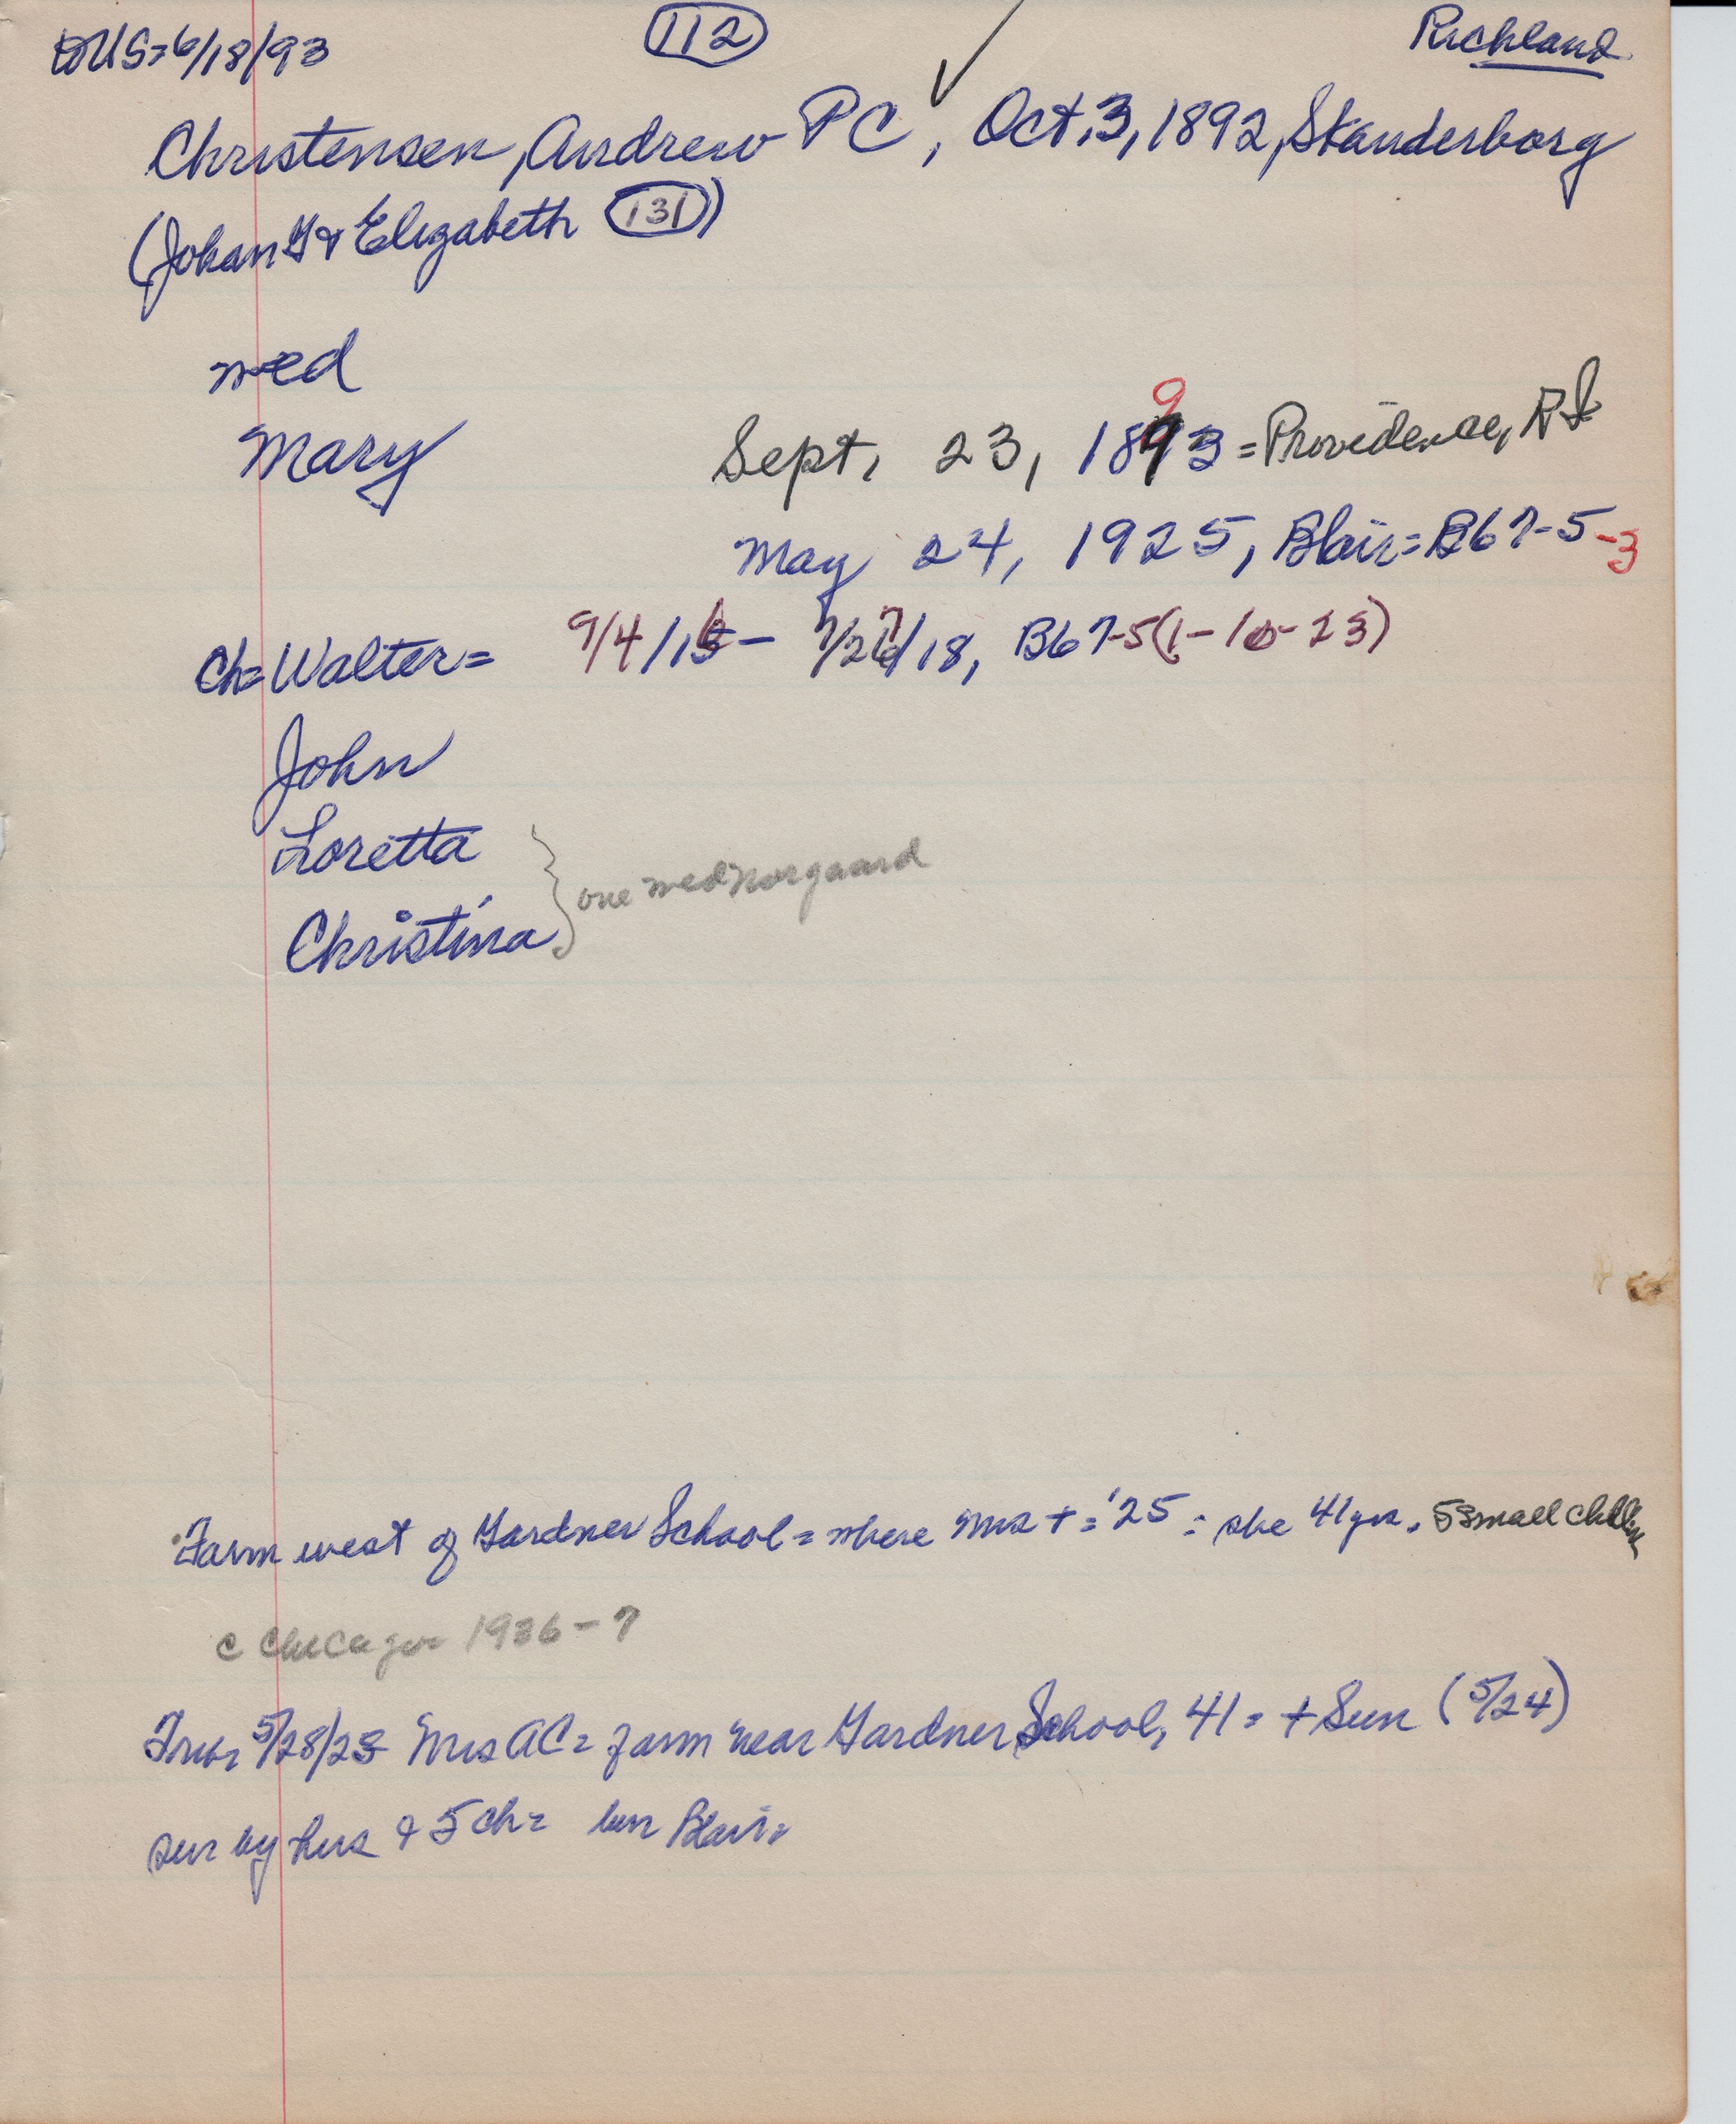 US=6/18/93 112 Richland
Christensen, Andrew P C, Oct. 3, 1892, Skanderborg
(Johan G & Elizabeth 131)
med
Mary Sept. 23, 1893 = Providence, R I
9
May 24, 1925, Blair = B67-5-3
Ch= Walter = 9/4/16 - 7/27/18, B67-5(1-10-23)
John
Loretta
Christina } one med Norgaard
Farm west of Gardner School = where Mrs + = '25 = she 41 yrs. 5 small chdren
c Chicago 1936-7
5/28/25 Mrs AC = farm near Gardner School, 41 = + Sun (5/24)
sur by hus & 5 ch = bur Blair=